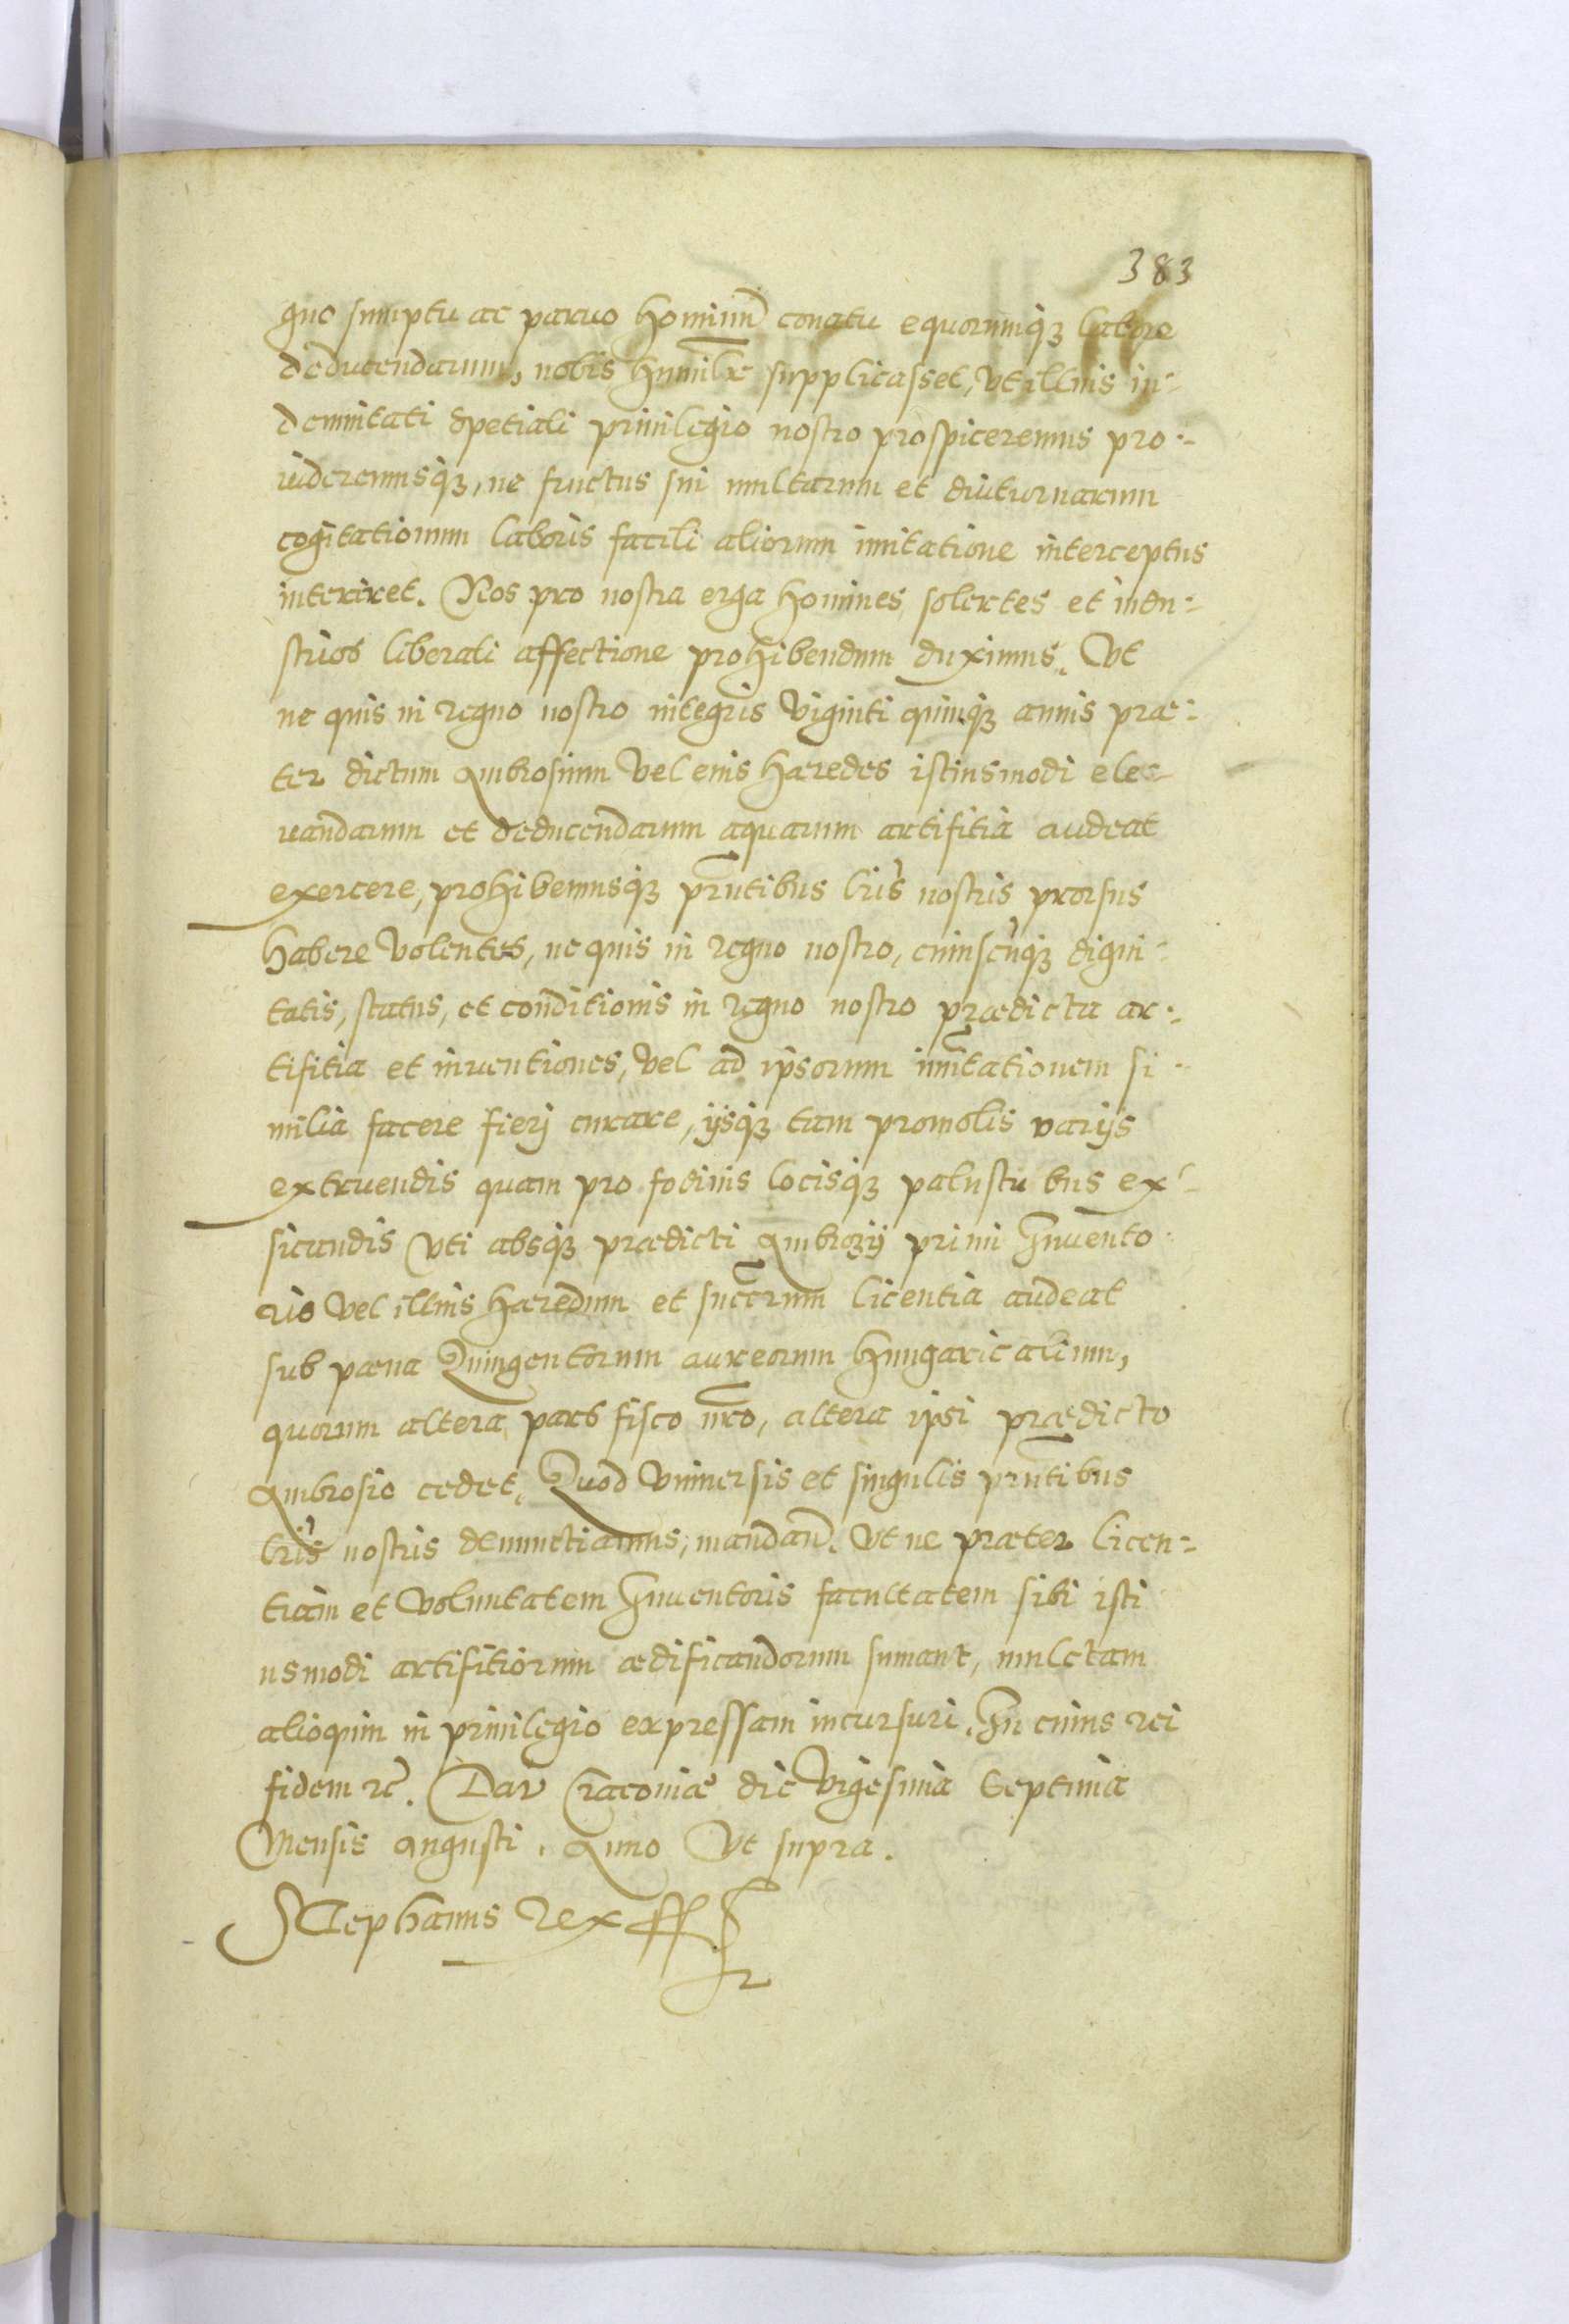 383
guo sumptu ac paruo Hominũ conatu equorumqȝ labore
deducendarum, nobis Humilr supplicasset, vt illius in-
demnitati Spetiali priuilegio nostro prospiceremus pro-
uideremusqȝ, ne fructus sui multarum et diuturnarum
cogitationum laboris facili aliorum imitatione interceptus
interiret. Nos pro nostra erga Homines solertes et indu-
strios liberali affectione prohibendum duximus. Vt
ne quis in regno nostro integris Viginti quinqȝ annis præ-
ter dictum Ambrosium Vel eius Hæredes istiusmodi ele-
uandarum et deducendarum aquarum artifitia audeat
exercere, prohibemusqȝ prñtibus lr̃is nostris prorsus
Habere Volentes, ne quis in regno nostro, cuiuscũqȝ digni-
tatis, status, et conditionis in regno nostro prædicta ar-
tifitia et inuentiones, Vel ad ipsorum immitationem si-
milia facere fierj curare, ijsqȝ tam pro molis varijs
extruendis quam pro fodinis locisqȝ palustribus ex-
sicandis vti absqȝ prædicti Ambrozij primi Inuento
ris Vel illius Hæredum et succrum licentia audeat
sub pæna Quingentorum aureorum Hungaricalium,
quorum altera pars fisco nr̃o, altera ipsi prædicto
Ambrosio cedet. Quod Vniuersis et singulis prñtibus
lr̃is nostris denunctiamus, mandañ. Vt ne præter licen-
tiam et Voluntatem Inuentoris facultatem sibi isti
usmodi artifitiorum ædificandorum sumant, mulctam
alioquin in priuilegio expressam incursuri. In cuius rei
fidem rc̃. Dat Cracouiæ die Vigesima Septima
Mensis Augusti. Anno Vt supra.
Stephanus Rex ss